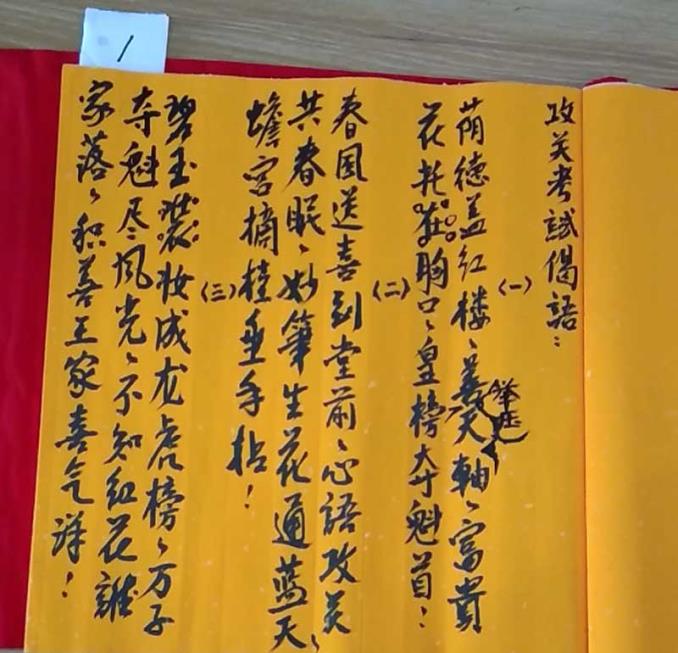 1
攻关考試偈語：
（一）
荫德盖红楼、善举压天軸、富貴
花托在胸口、皇榜夺魁首：
（二）
春風送喜到堂前、心語攻关
共春眠、妙筆生花通蓝天、
蟾宫摘桂垂手拈！
（三）
碧玉妆成龙虎榜、万子
夺魁尽风光、不知红花誰
家落、积善王家喜气洋！